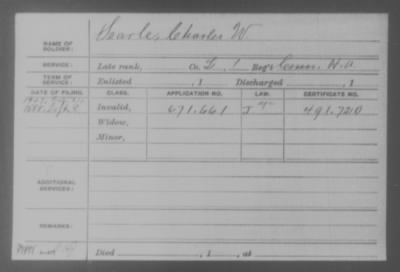 Searles, Charles W
NAME OF SOLDIER:
SERVICE: Late rank, Co. G, 1 Reg't Conn. H.A.
TERM OF SERVICE: Enlisted , 1 Discharged , 1
DATE OF FILING. CLASS. APPLICATION NO. LAW. CERTIFICATE NO.
1888 Sept Invalid, 671.661 J 491.720
Widow,
Minor,
ADDITIONAL SERVICES:
REMARKS:
Died , 1 , at